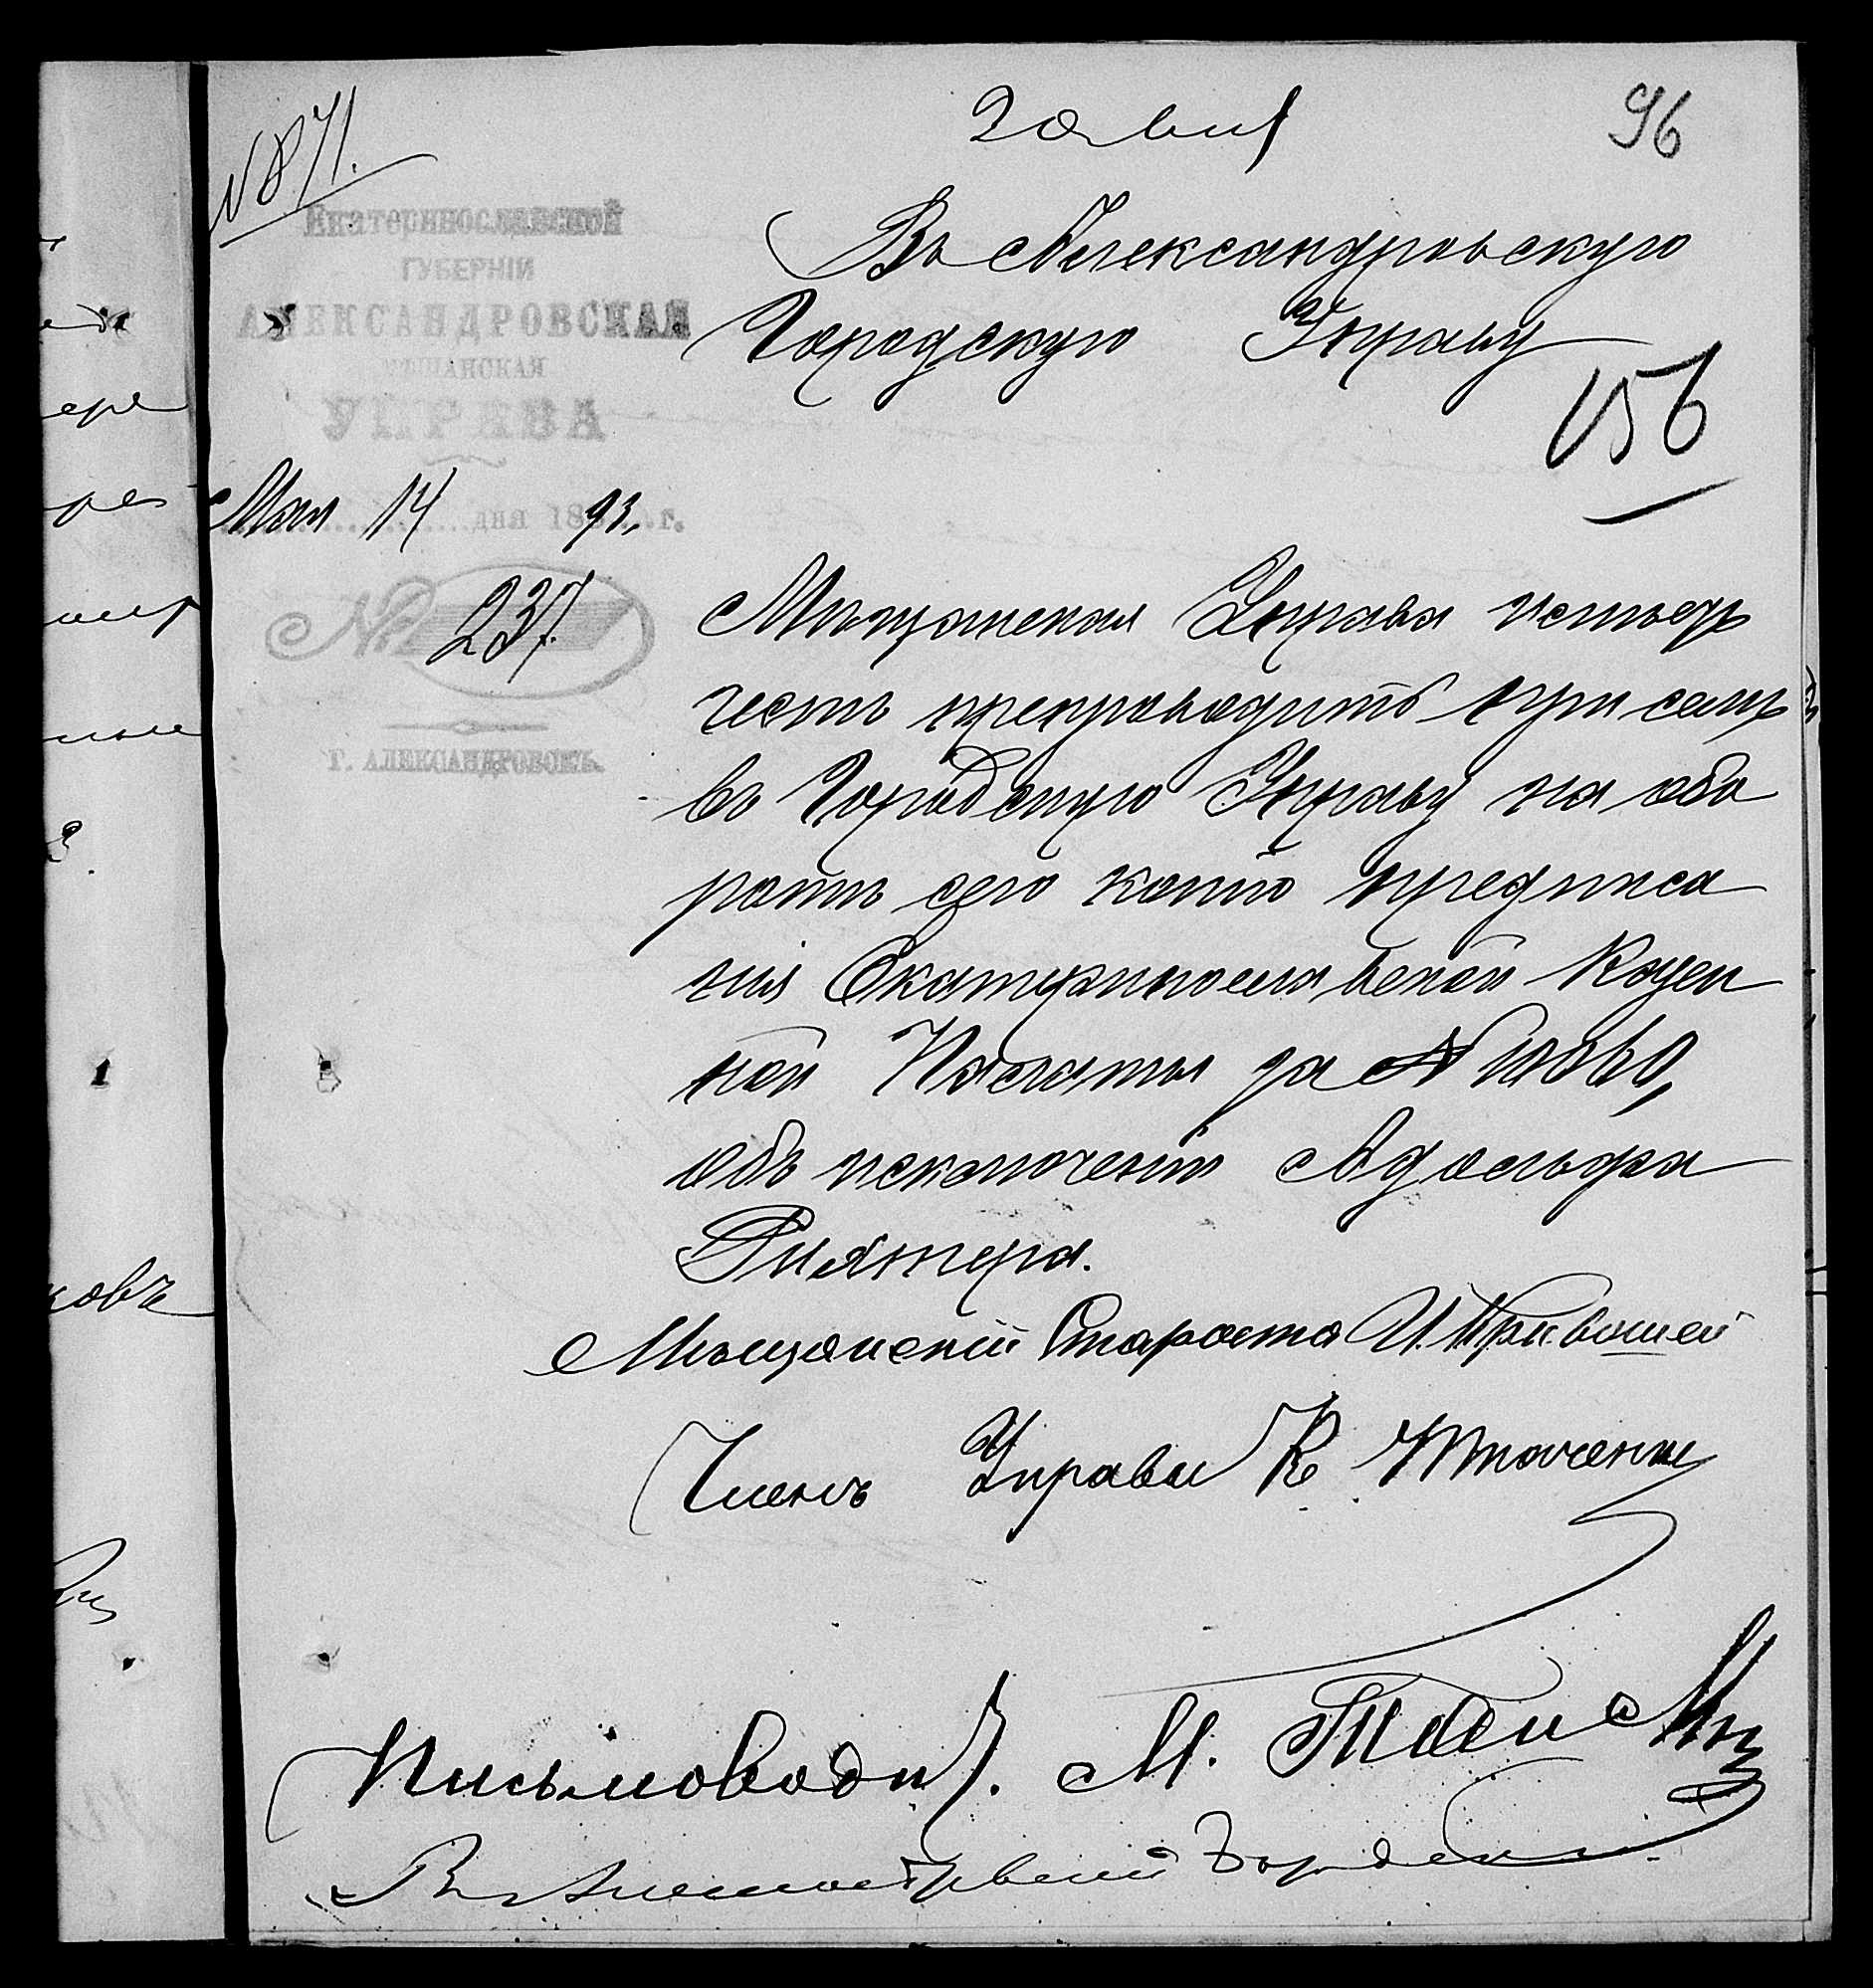 96
№ 871.
Екатеринославской
ГУБЕРНІИ
АЛЕКСАНДРОВСКАЯ
МѢЩАНСКАЯ
УПРАВА
Мая 14 дня 1893 г.
№ 237
Г. АЛЕКСАНДРОВСКЪ.
Въ Александровскую
Городскую Управу
156
Мѣщанская Управа имѣетъ
честь препроводить при семъ
въ Городскую Управу на обо
ротѣ сего копію предписа
нія Екатеринославской Казен
ной Палаты за №
объ исключеніи Адольфа
Рихтера.
Мѣщанскій Староста И. Кривошей
Членъ Управы К
Письмоводит. М.
3.
ковъ